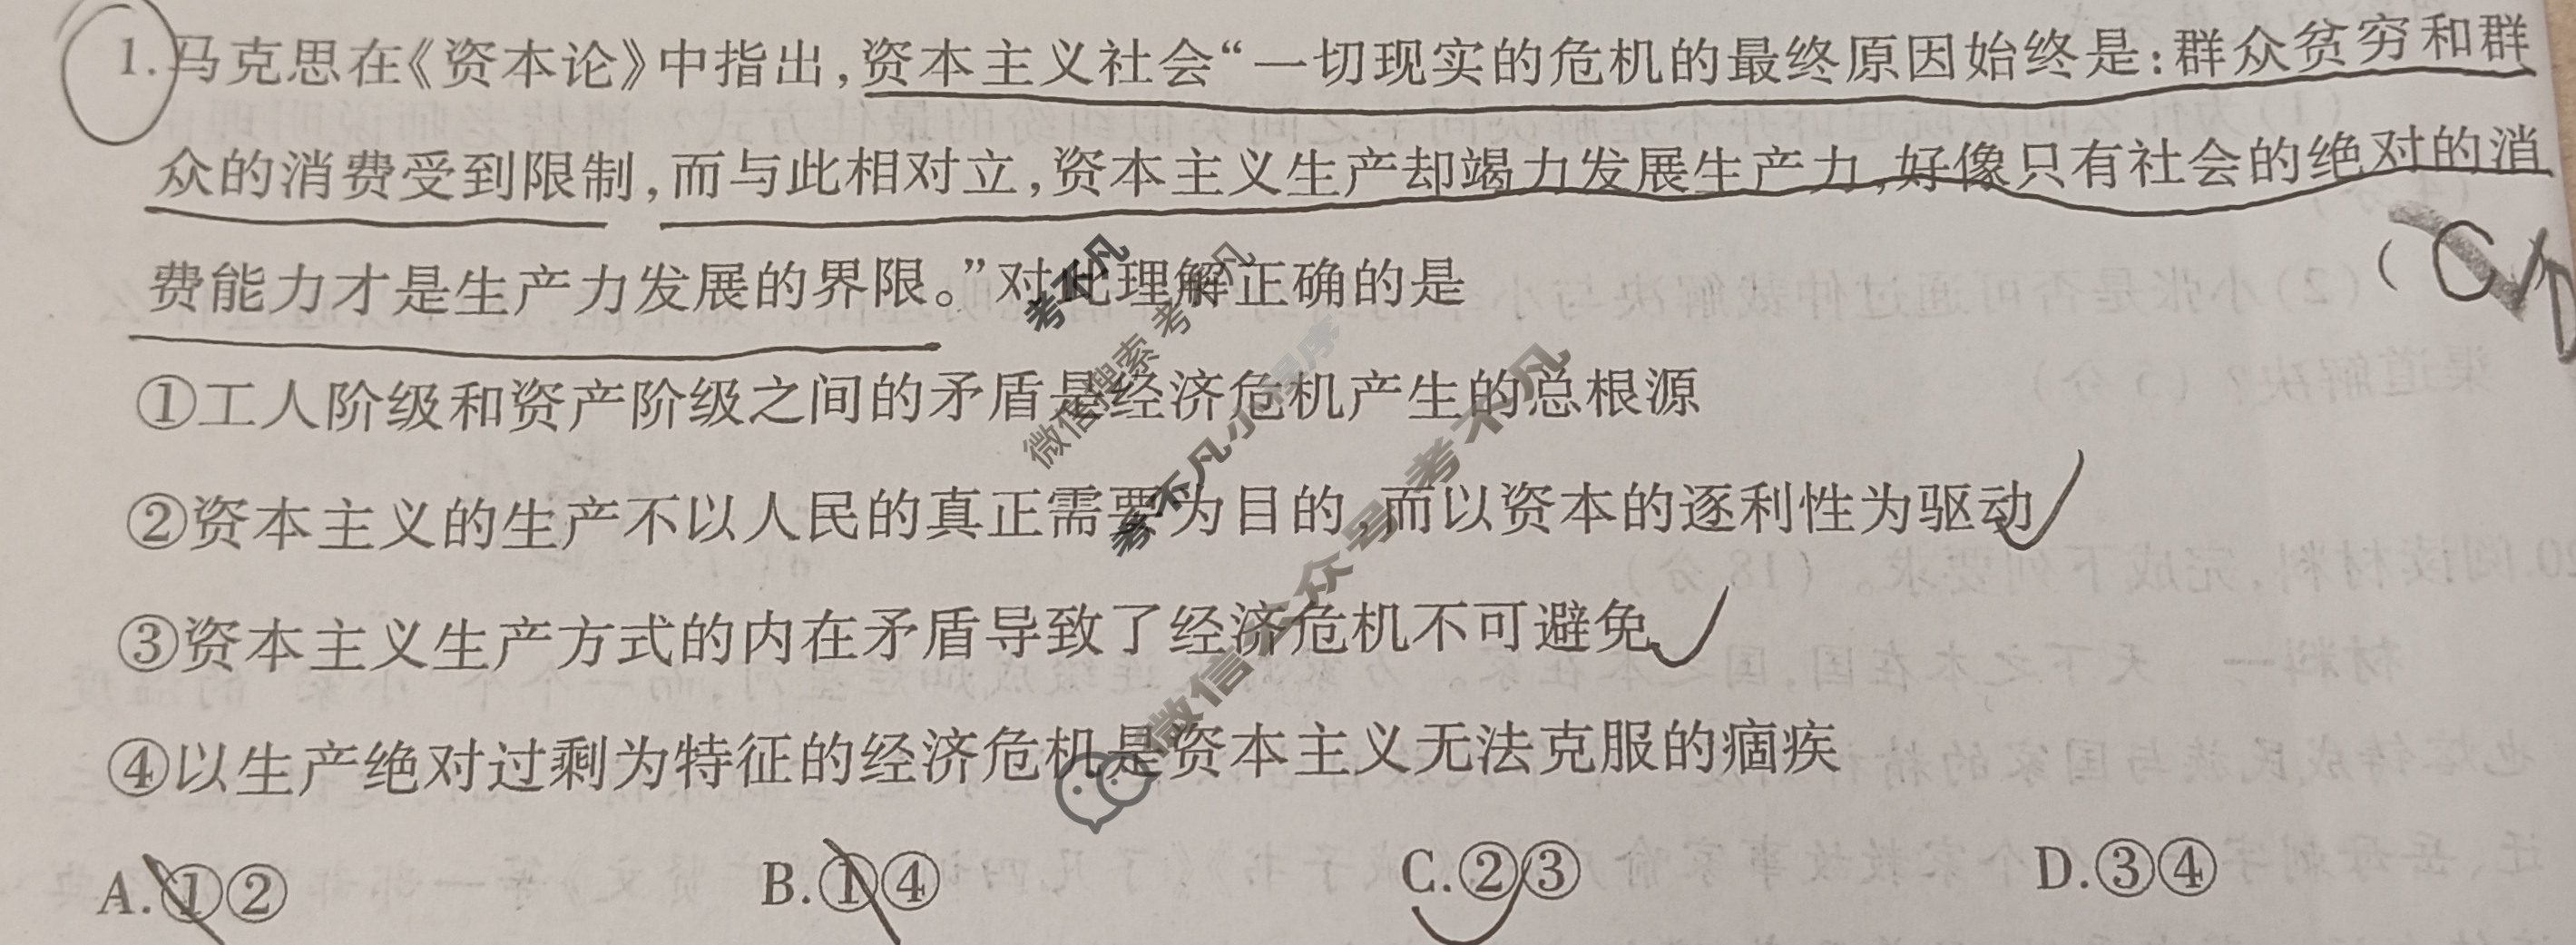 1.马克思在《资本论》中指出,资本主义社会“一切现实的危机的最终原因始终是:群众贫穷和群
众的消费受到限制,而与此相对立,资本主义生产却竭力发展生产力,好像只有社会的绝对的消
费能力才是生产力发展的界限。”对此理解正确的是 ( C
①工人阶级和资产阶级之间的矛盾是经济危机产生的总根源
②资本主义的生产不以人民的真正需要为目的,而以资本的逐利性为驱动
③资本主义生产方式的内在矛盾导致了经济危机不可避免
④以生产绝对过剩为特征的经济危机是资本主义无法克服的痼疾
A.①② B.①④ C.②③ D.③④
考不凡
微信搜索 考不凡
考不凡小程序
微信公众号 考不凡